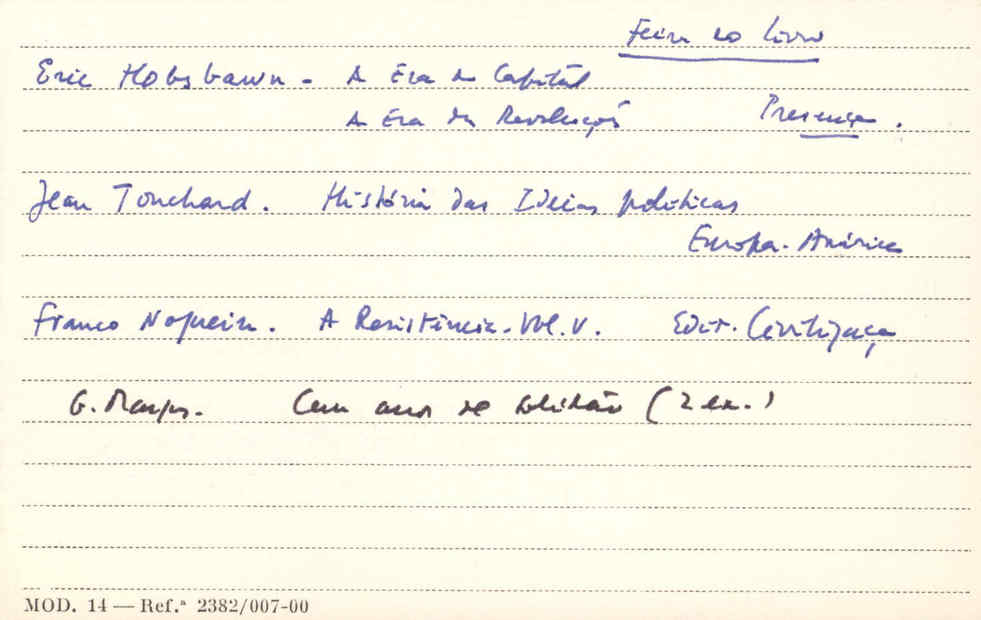 Feira do Livro
Eric Hobsbawn - A Era do Capital
A Era da Revolução Presença.
Jean Touchard. História das Ideias políticas
Europa-América
Franco Nogueira. A Resistência. Vol. V. Edit. Civilização
G. Marques. Cem anos de solidão (2 ex.)
MOD. 14 — Ref.ª 2382/007-00